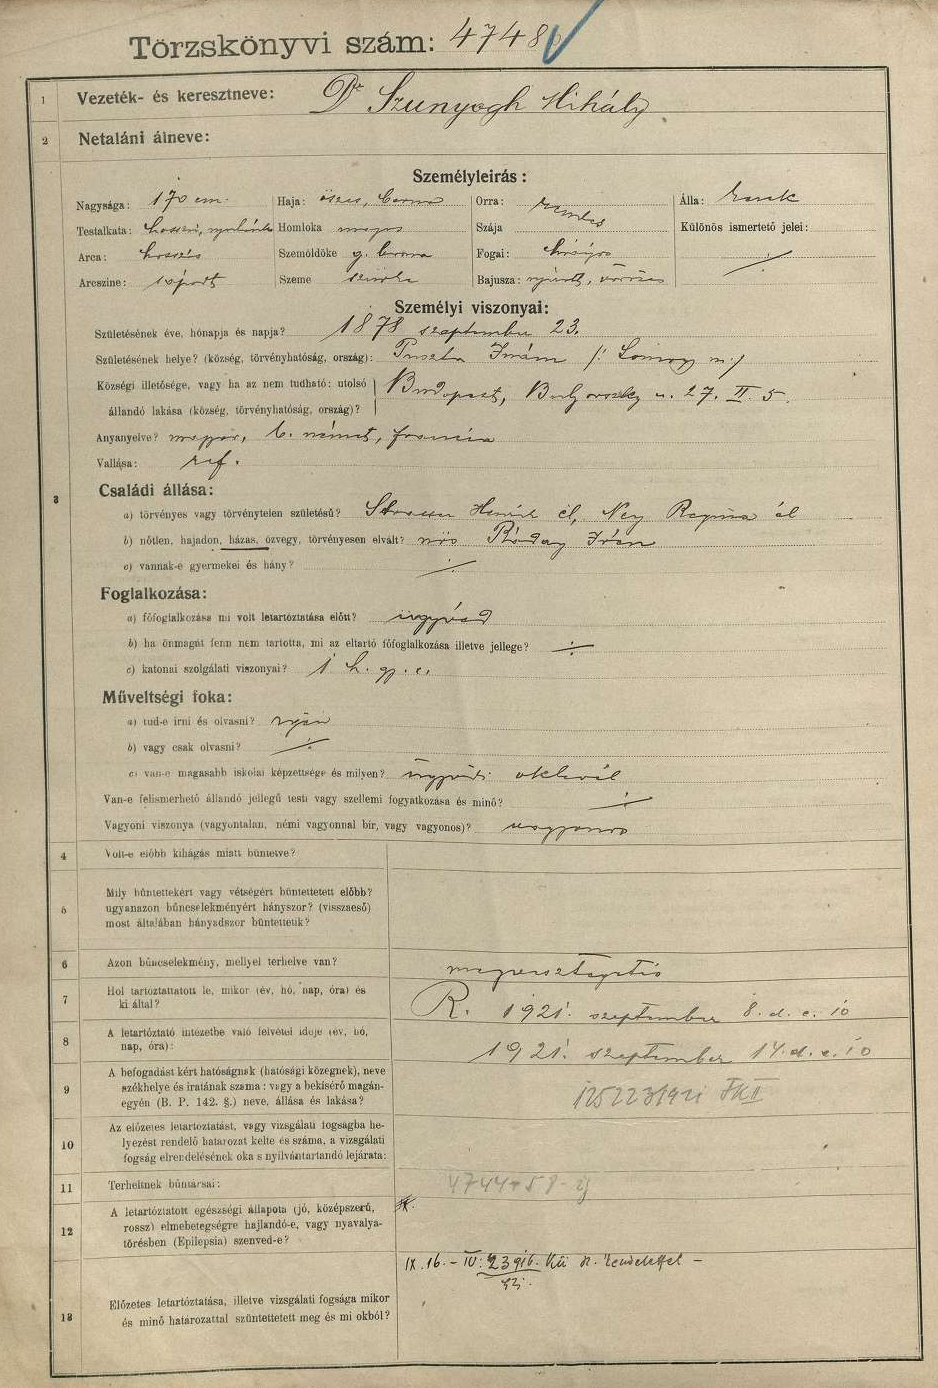 Törzskönyvi szám: 4748
1 Vezeték- és keresztneve: Dr Szunyogh Mihály
2 Netaláni álneve:
Személyleírás:
Nagysága: 170 cm. Haja: őszes, barna Orra: rendes Álla: kerek
Testalkata: hosszú, nyulánk Homloka magas Szája Különös ismertető jelei:
Arca: hosszás Szemöldöke g. barna Fogai: hiányos ./.
Arcszíne: sápadt Szeme szürke Bajusza: nyírott, vöröses
Személyi viszonyai:
Születésének éve, hónapja és napja? 1878 szeptember 23.
Születésének helye? (község, törvényhatóság, ország): Puszta /: Somogy m:/
Községi illetősége, vagy ha az nem tudható: utolsó
állandó lakása (község, törvényhatóság, ország)? Budapest, u. 27. II. 5.
Anyanyelve? magyar, b. német, francia
Vallása: ref.
3 Családi állása:
a) törvényes vagy törvénytelen születésű? Henrik el, Ney Regina él
b) nőtlen, hajadon, házas, özvegy, törvényesen elvált? nős Ráday Irén
c) vannak-e gyermekei és hány? ./.
Foglalkozása:
a) főfoglalkozása mi volt letartóztatása előtt? ügyvéd
b) ha önmagát fenn nem tartotta, mi az eltartó főfoglalkozása illetve jellege? ./.
c) katonai szolgálati viszonyai? 1 h. gy. e.
Műveltségi foka:
a) tud-e írni és olvasni? igen
b) vagy csak olvasni? ./.
c) van-e magasabb iskolai képzettsége és milyen? ügyvédi oklevél
Van-e felismerhető állandó jellegű testi vagy szellemi fogyatkozása és minő? ./.
Vagyoni viszonya (vagyontalan, némi vagyonnal bír, vagy vagyonos)? vagyonos
4 Volt-e előbb kihágás miatt büntetve?
5 Mily bűntettekért vagy vétségért büntettetett előbb?
ugyanazon bűncselekményért hányszor? (visszaeső)
most általában hányadszor büntettetik?
6 Azon bűncselekmény, mellyel terhelve van? megvesztegetés
7 Hol tartóztattatott le, mikor (év, hó, nap, óra) és
ki által? R. 1921. szeptember 8. d. e. 10
8 A letartóztató intézetbe való felvétel ideje (év, hó,
nap, óra): 1921. szeptember 14. d. e. 10
9 A befogadást kért hatóságnak (hatósági közegnek), neve
székhelye és iratának száma: vagy a bekísérő magán-
egyén (B. P. 142. §.) neve, állása és lakása? 125223/921 FKII
10 Az előzetes letartóztatást, vagy vizsgálati fogságba he-
lyezést rendelő határozat kelte és száma, a vizsgálati
fogság elrendelésének oka s nyilvántartandó lejárata:
11 Terheltnek bűntársai: 4744-58-ig
12 A letartóztatott egészségi állapota (jó, középszerű,
rossz) elmebetegségre hajlandó-e, vagy nyavalya-
törésben (Epilepsia) szenved-e?
IX. 16. - IV: 23916. Kü sz. rendelettel -
13 Előzetes letartóztatása, illetve vizsgálati fogsága mikor
és minő határozattal szüntettetett meg és mi okból?